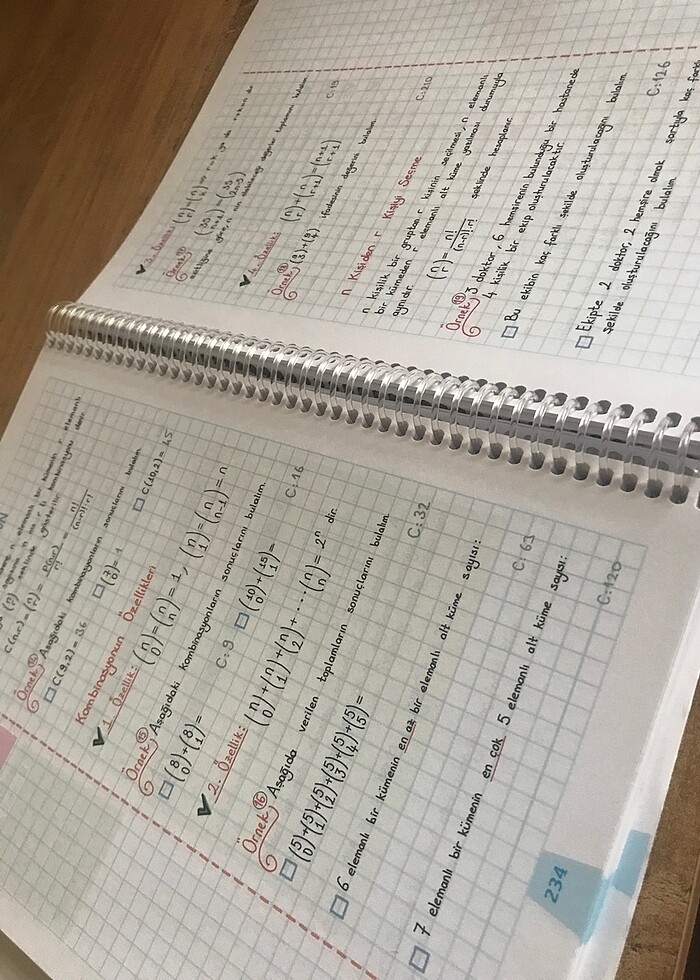 C(n,r) = (n r) = P(n,r)/r! = n!/(n-r)!·r!
Örnek Aşağıdaki kombinasyonların sonuçlarını bulalım.
C(9,2) = 36
(7 0) = 1
C(10,2) = 45
Kombinasyonun Özellikleri
1. Özellik: (n 0) = (n n) = 1, (n 1) = (n n-1) = n
Örnek 15 Aşağıdaki kombinasyonların sonuçlarını bulalım.
(8 0) + (8 1) =
C: 9
(10 0) + (15 1) =
C: 16
2. Özellik: (n 0) + (n 1) + (n 2) + .... (n n) = 2ⁿ dir.
Örnek 16 Aşağıda verilen toplamların sonuçlarını bulalım.
(5 0) + (5 1) + (5 2) + (5 3) + (5 4) + (5 5) =
C: 32
6 elemanlı bir kümenin en az bir elemanlı alt küme sayısı:
C: 63
7 elemanlı bir kümenin en çok 5 elemanlı alt küme sayısı:
C: 120
234
3. Özellik:
Örnek
4. Özellik: (n r) + (n r+1) = (n+1 r+1)
C: 19
Örnek 18 (9 3) + (9 4) ifadesinin değerini bulalım.
C: 210
n Kişiden r Kişiyi Seçme
n kişilik bir gruptan r kişinin seçilmesi, n elemanlı
bir kümeden r elemanlı alt küme yazılması durumuyla
aynıdır.
(n r) = n!/(n-r)!·r! şeklinde hesaplanır.
Örnek 19 3 doktor, 6 hemşirenin bulunduğu bir hastanede
4 kişilik bir ekip oluşturulacaktır.
Bu ekibin kaç farklı şekilde oluşturulacağını bulalım.
C: 126
Ekipte 2 doktor, 2 hemşire olmak şartıyla kaç farklı
şekilde oluşturulacağını bulalım.